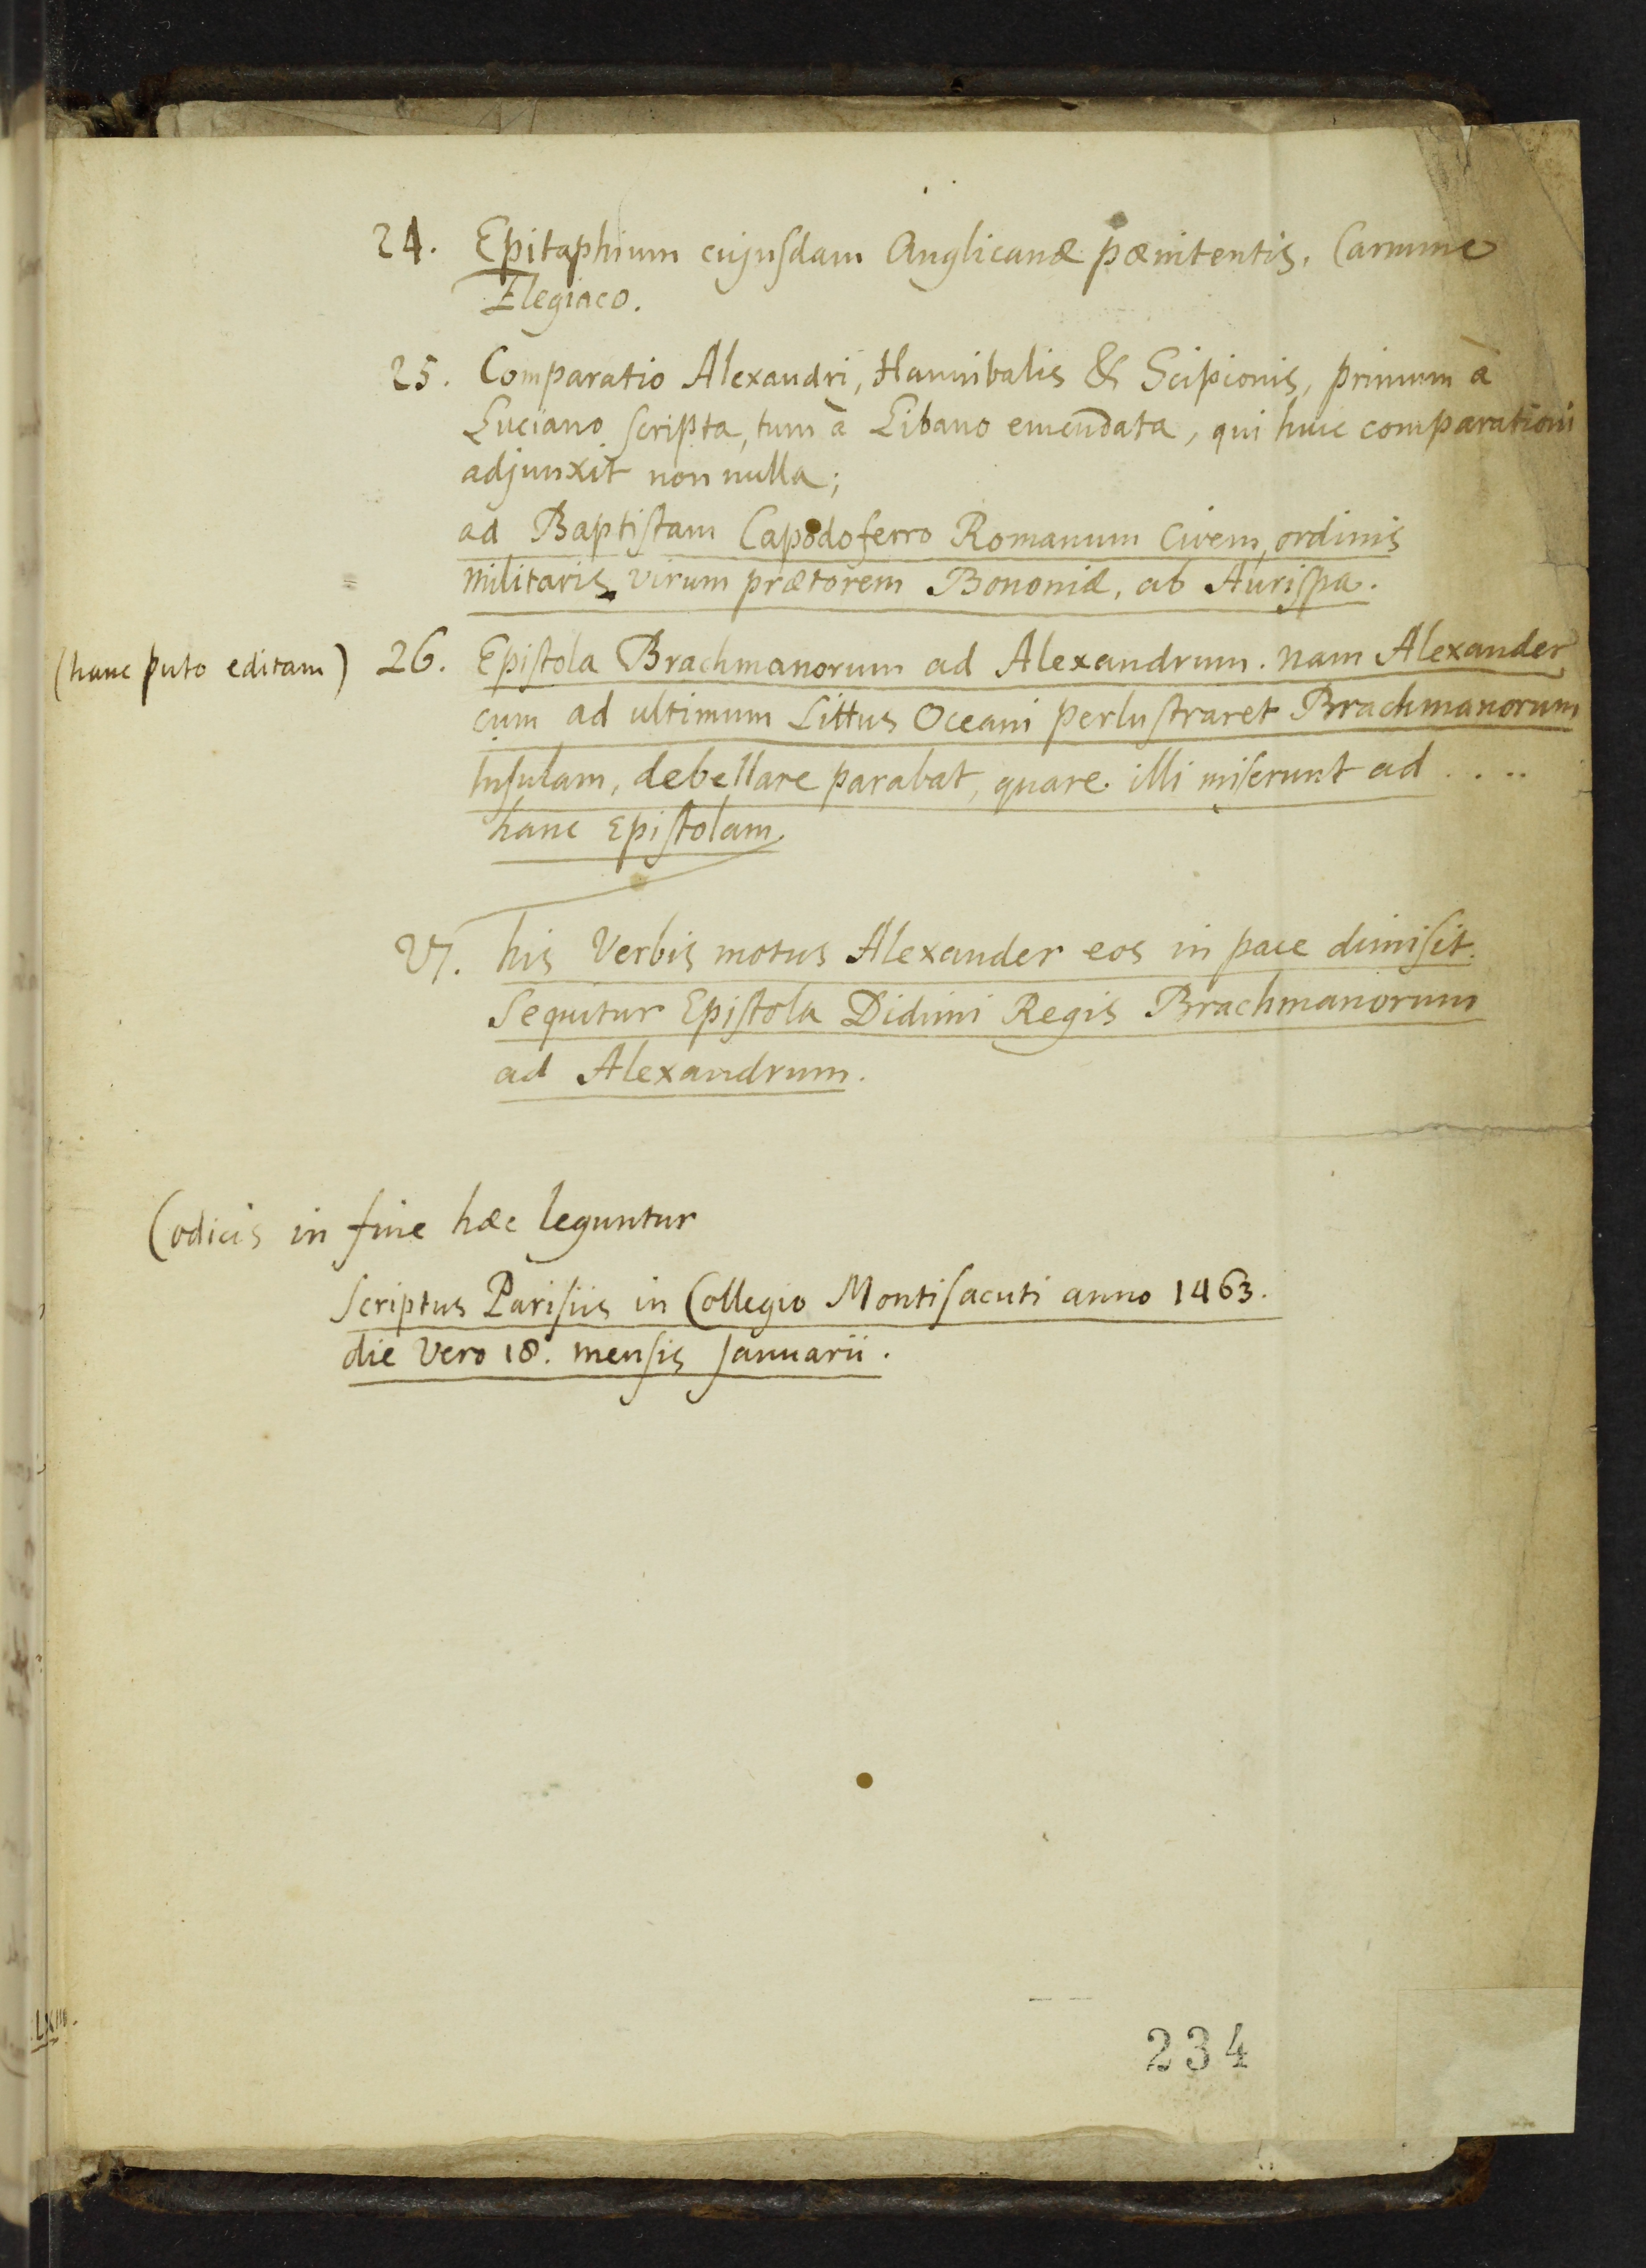 24. Epitaphium cujusdam Anglicanæ pœnitentis, Carmine
Elegiaco.
25. Comparatio Alexandri, Hannibalis & Scipionis, primum à
Luciano scripta, tum à Libano emendata, qui huic comparationi
adjunxit non nulla;
ad Baptistam Capodoferro Romanum Civem, ordinis
militaris virum prætorem Bononiæ, ab Aurispa.
(hanc puto editam) 26. Epistola Brachmanorum ad Alexandrum. nam Alexander
cum ad ultimum Littus Oceani perlustraret Brachmanorum
Insulam, debellare parabat, quare illi miserunt ad ....
hanc Epistolam.
27. his Verbis motus Alexander eos in pace dimisit.
Sequitur Epistola Didimi Regis Brachmanorum
ad Alexandrum.
Codicis in fine hæc leguntur
Scriptus Parisiis in Collegio Montisacuti anno 1463.
die Vero 18. mensis Januarii.
234